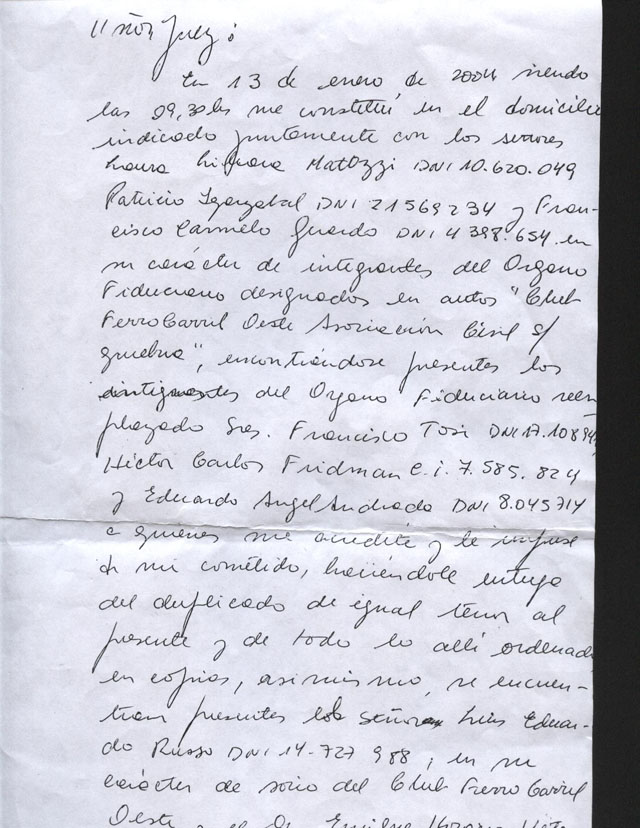 Señor Juez:
En 13 de enero de 2004 siendo
las 09,30 hs me constituí en el domicilio
indicado juntamente con los señores
Laura Mattozzi DNI 10.620.049
Patricio DNI 21569234 y Fran-
cisco Carmelo Guardo DNI 4398.654 en
su carácter de integrantes del Organo
Fiduciario designados en autos "Club
FerroCarril Oeste Asociación Civil s/
quiebra", encontrándose presentes los
integrantes del Organo Fiduciario reem
plazado Sres. Francisco Tosi DNI 17.10894
Héctor Carlos Fridman C.i. 7.585.824
y Eduardo Angel Andrado DNI 8.045714
a quienes me acredité y le impuse
de mi cometido, haciéndole entrega
del duplicado de igual tenor al
presente y de todo lo allí ordenado
en copias, asimismo, se encuen-
tran presentes los señores Luis Eduar-
do Russo DNI 14-727 988, en su
carácter de socio del Club Ferro Carril
Oeste y el Dr Enrique